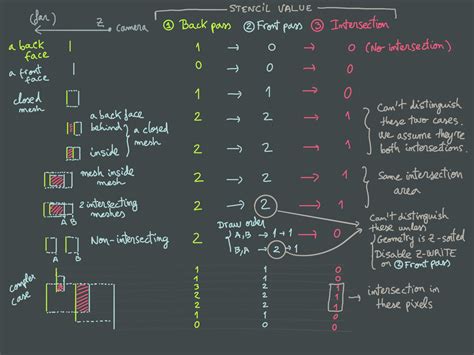 STENCIL VALUE
(far) Z camera ① Back pass ② Front pass ③ Intersection
a back face 1 → 0 → 0 (No intersection)
a front face 0 → 0 → 0
closed mesh 1 → 1 → 0
a back face behind } a closed mesh 2 → 2 → 1
inside 2 → 2 → 1
Can't distinguish
these two cases.
We assume they're
both intersections.
mesh inside mesh 2 → 2 → 1 Same intersection
area
2 intersecting meshes 2 → 2 → 1
A B
Can't distinguish
these unless
Geometry is Z-sorted
Disable Z-WRITE
on ② Front pass
Non-intersecting 2 Draw order → 0
A B
A,B → 1 → 1
B,A → 2 → 1
complex case
1 1 0
1 1 0
3 2 1
2 2 1
2 2 1
1 1 0
0 0 0
intersection in
these pixels